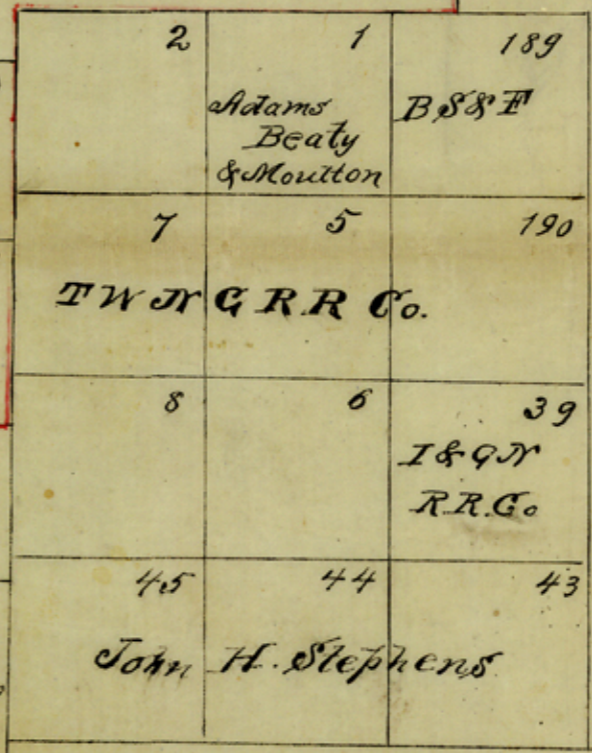 2 1 189
Adams
Beaty
& Moulton
B S & F
7 5 190
T W N G R. R Co.
8 6 39
I & G N
R. R. Co
45 44 43
John H. Stephens